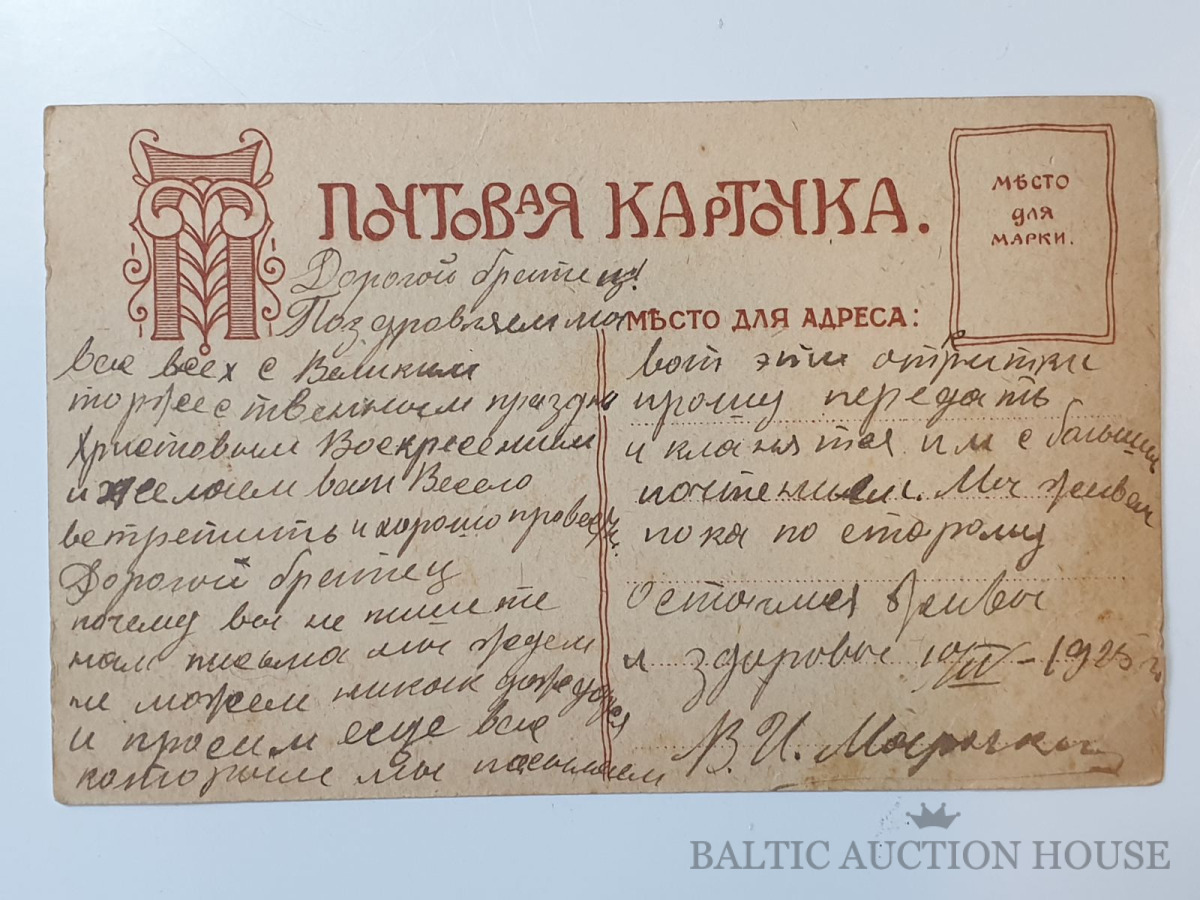 ПОЧТОВАЯ КАРТОЧКА.
МѢСТО
для
МАРКИ.
Дорогой братец!
Поздравляем мы
МѢСТО ДЛЯ АДРЕСА:
все всех с Великим
торжественным праздн
Христовым Воскресением
и желаем вам Весело
встретить и хорошо провесть.
Дорогой братец
почему вы не пишите
нам письма мы ждем
не можем никак дождуся
и просим еще
которыим мы посылаем
вот эти открытки
прошу передать
и кланятся им с большим
почтением. Мы живем
пока по старому
Остаемся живы
и здоровы 10/III-1925 г.
В. И.
BALTIC AUCTION HOUSE